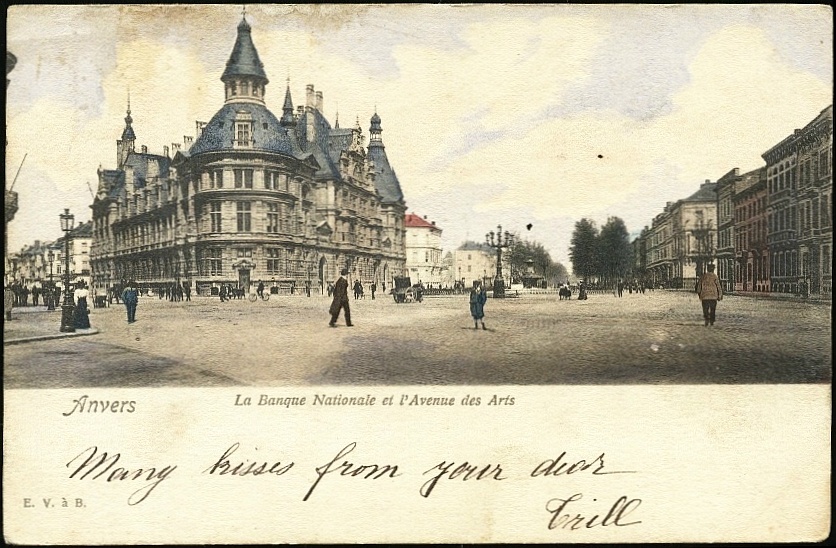 Anvers
La Banque Nationale et l'Avenue des Arts
Many kisses from your dear
Trill
E. V. à B.